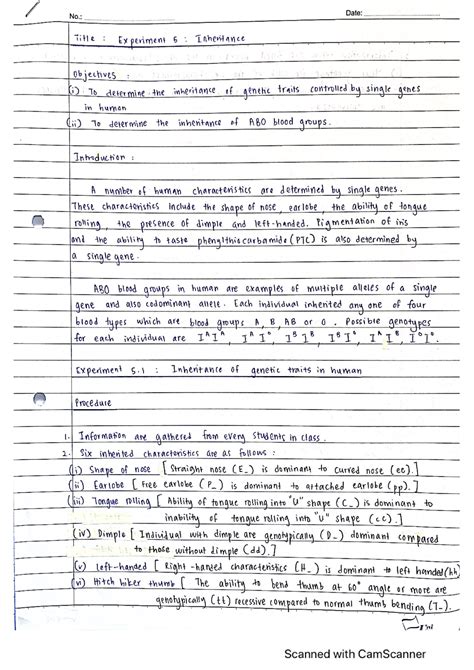 No.:
Date:
Title : Experiment 5 : Inheritance
Objectives :
(i) To determine the inheritance of genetic traits controlled by single genes
in human
(ii) To determine the inheritance of ABO blood groups.
Introduction :
A number of human characteristics are determined by single genes.
These characteristics include the shape of nose, earlobe, the ability of tongue
rolling, the presence of dimple and left-handed. Pigmentation of iris
and the ability to taste phenylthiocarbamide (PTC) is also determined by
a single gene.
ABO blood groups in human are examples of multiple alleles of a single
gene and also codominant allele. Each individual inherited any one of four
blood types which are blood groups A, B, AB or O. Possible genotypes
for each individual are IᴬIᴬ, IᴬI⁰, IᴮIᴮ, IᴮI⁰, IᴬIᴮ, I⁰I⁰.
Experiment 5.1 : Inheritance of genetic traits in human
Procedure
1. Information are gathered from every students in class.
2. Six inherited characteristics are as follows :
(i) Shape of nose [ Straight nose (E_) is dominant to curved nose (ee).]
(ii) Earlobe [ Free earlobe (P_) is dominant to attached earlobe (pp).]
(iii) Tongue rolling [ Ability of tongue rolling into "U" shape (C_) is dominant to
inability of tongue rolling into "U" shape (cc).]
(iv) Dimple [ Individual with dimple are genotypically (D_) dominant compared
to those without dimple (dd).]
(v) Left-handed [ Right-handed characteristics (H_) is dominant to left handed (hh)
(vi) Hitch hiker thumb [ The ability to bend thumb at 60° angle or more are
genotypically (tt) recessive compared to normal thumb bending (T_).
Scanned with CamScanner